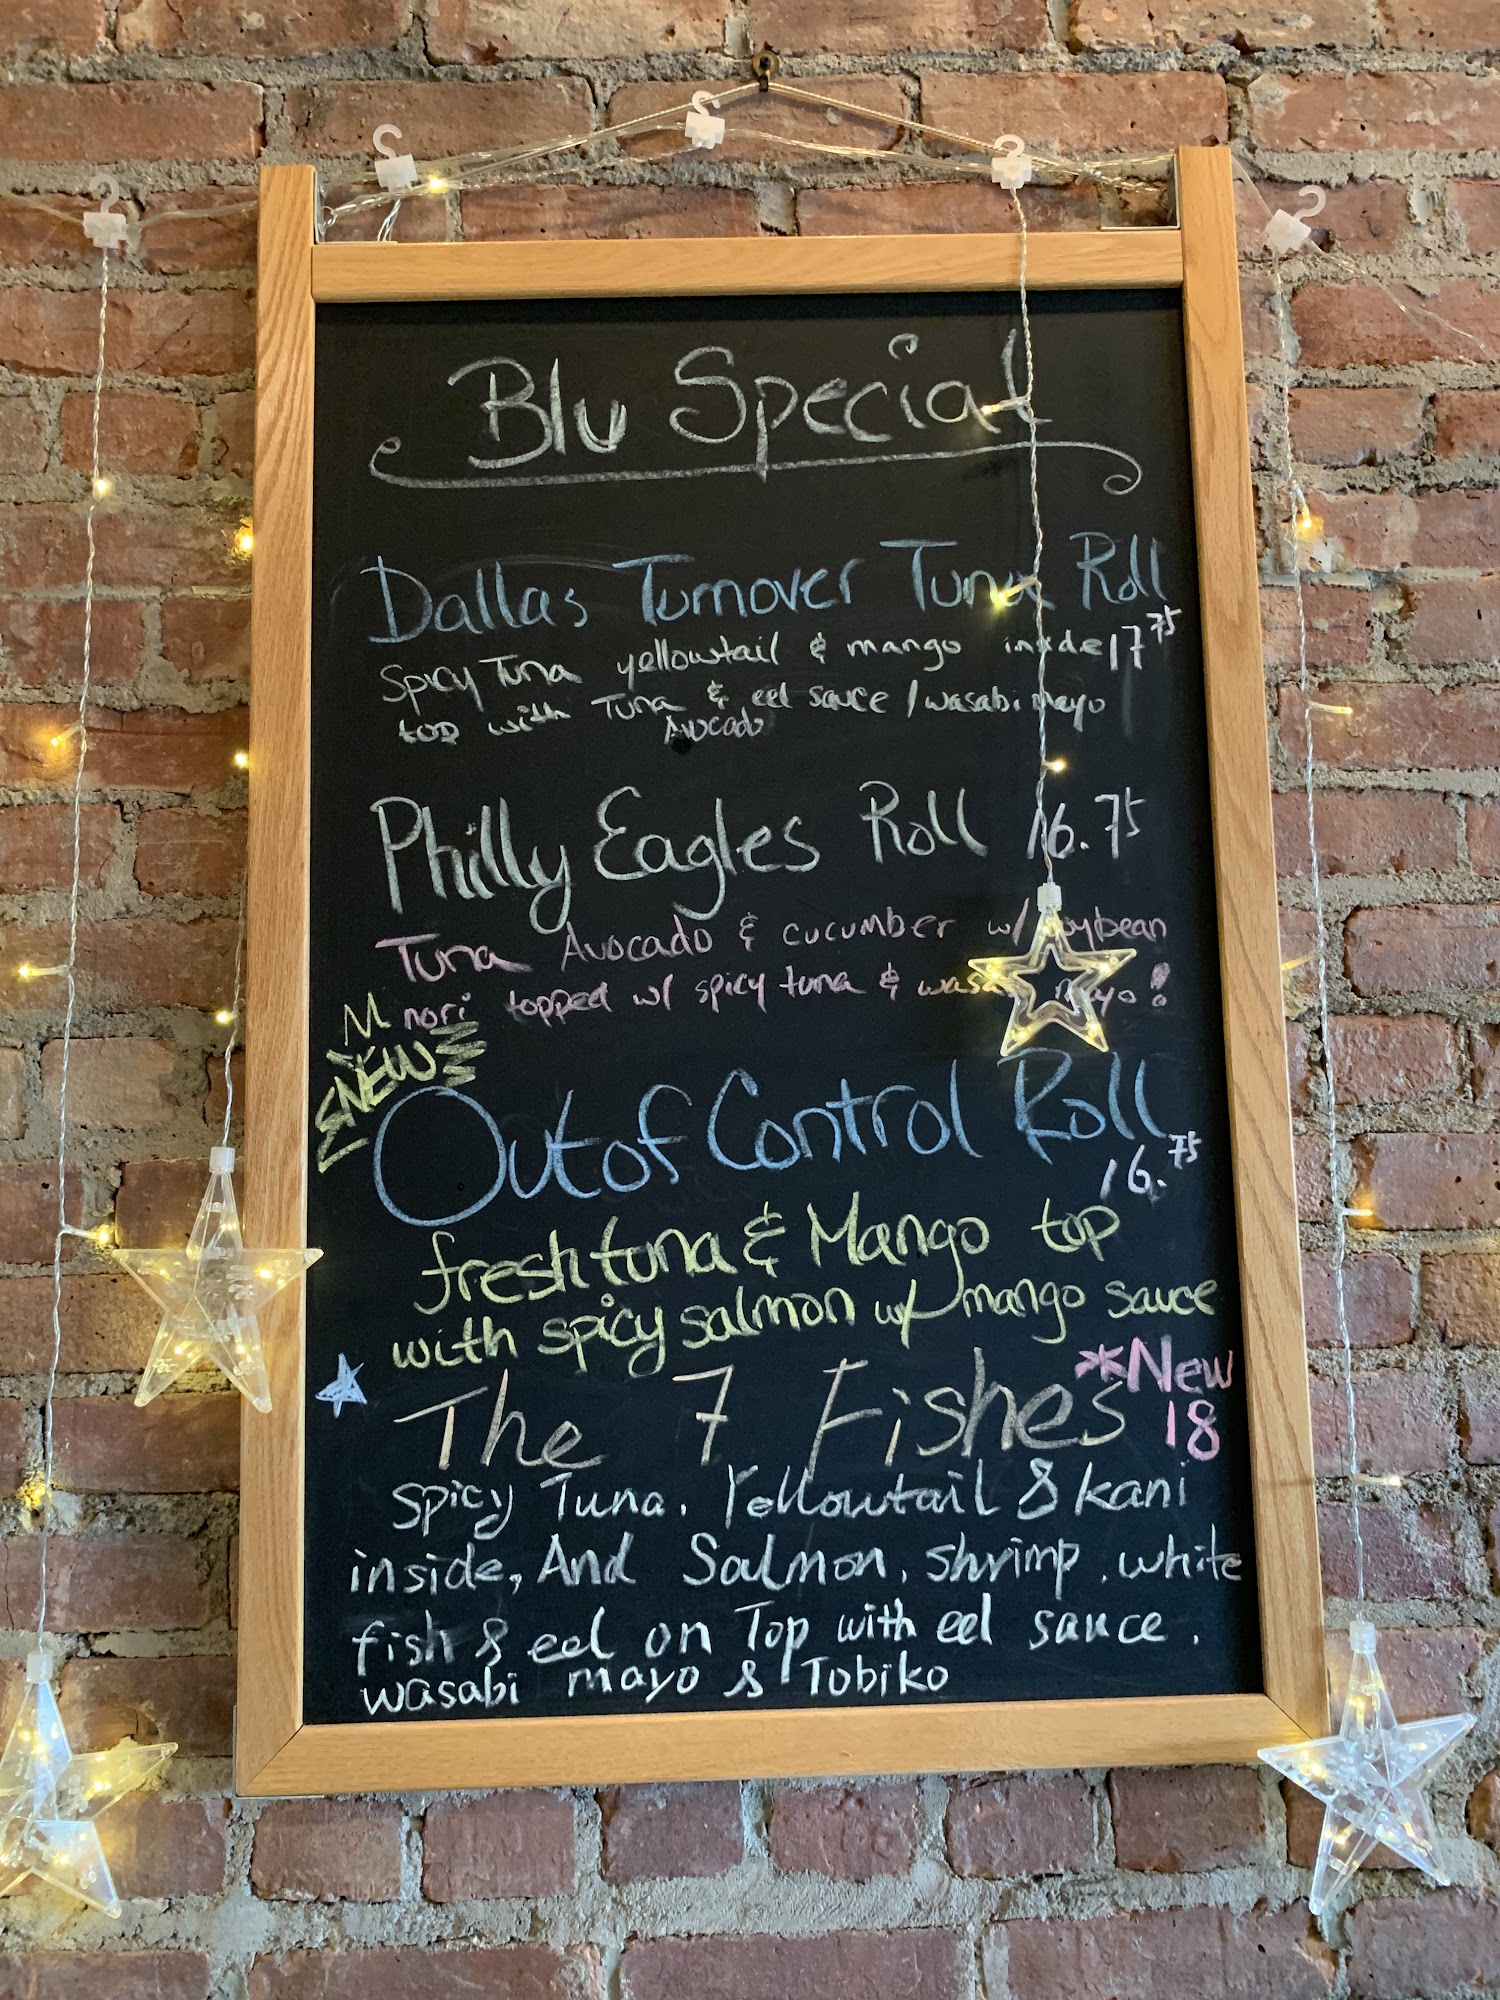 Blu Special
Dallas Turnover Tuna Roll
Spicy Tuna yellowtail & mango inside 17 75
top with Tuna & eel sauce / wasabi mayo
Avocado
Philly Eagles Roll 16.75
Tuna Avocado & cucumber w/ soybean
nori topped w/ spicy tuna & wasabi mayo!
NEW
Out of Control Roll
16.75
fresh tuna & Mango top
with spicy salmon w/ mango sauce
*New
The 7 Fishes 18
Spicy Tuna. Yellowtail & kani
inside, And Salmon. shrimp. white
fish & eel on Top with eel sauce.
wasabi mayo & Tobiko